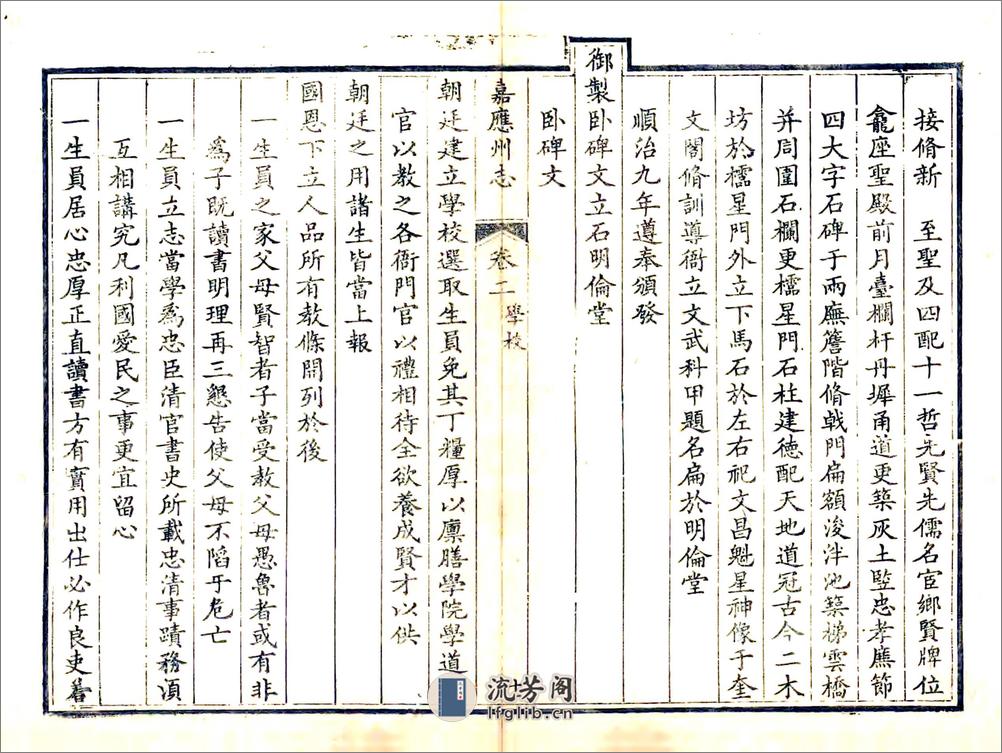 接脩新　至聖及四配十一哲先賢先儒名宦鄉賢牌位
龕座聖殿前月臺欄杆丹墀甬道更築灰土竪忠孝廉節
四大字石碑于兩廡簷階脩戟門扁額浚泮池築梯雲橋
并周圍石欄更櫺星門石柱建德配天地道冠古今二木
坊於櫺星門外立下馬石於左右祀文昌魁星神像于奎
文閣脩訓導衙立文武科甲題名扁於明倫堂
順治九年遵奉頒發
御製卧碑文立石明倫堂
卧碑文
嘉應州志　卷二　學校
朝廷建立學校選取生員免其丁糧厚以廩膳學院學道
官以教之各衙門官以禮相待全欲養成賢才以供
朝廷之用諸生皆當上報
國恩下立人品所有教條開列於後
一生員之家父母賢智者子當受教父母愚魯者或有非
為子既讀書明理再三懇告使父母不陷于危亡
一生員立志當學為忠臣清官書史所載忠清事蹟務須
互相講究凡利國愛民之事更宜留心
一生員居心忠厚正直讀書方有實用出仕必作良吏若
流芳閣
lfglib.cn